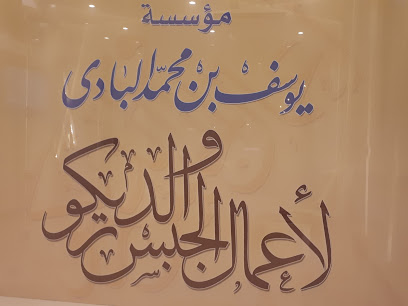 مؤسسة
يوسف بن محمد البادي
لأعمال الجبس والديكور